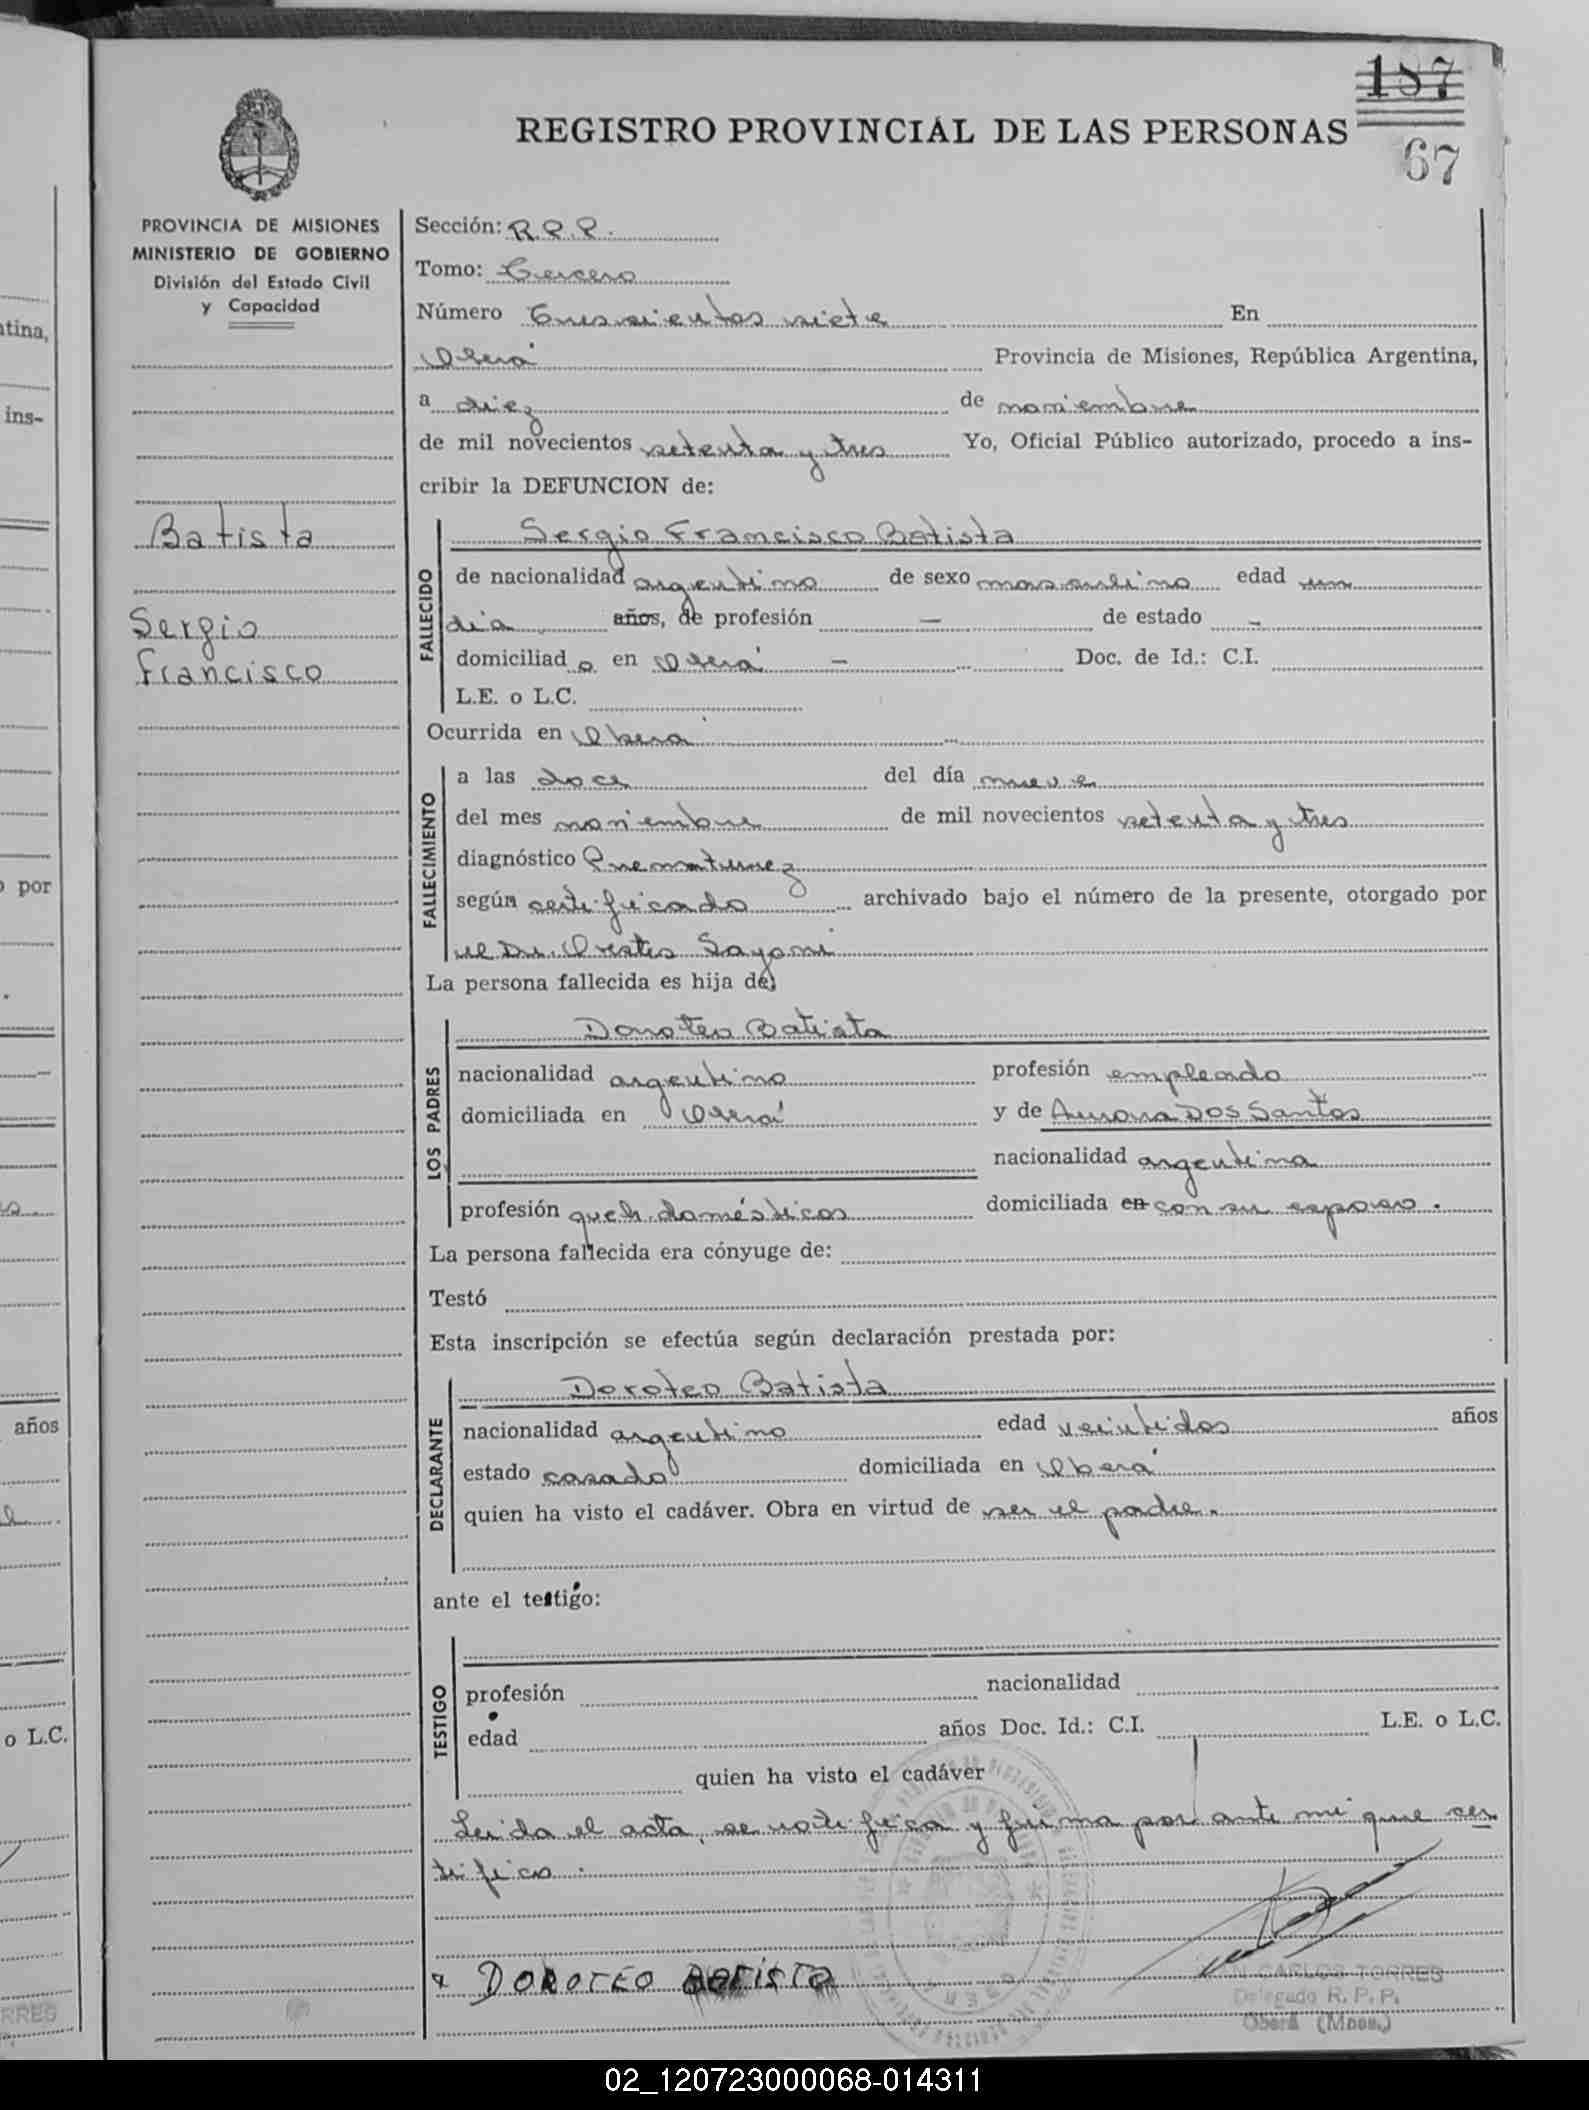 187
REGISTRO PROVINCIAL DE LAS PERSONAS
67
PROVINCIA DE MISIONES
MINISTERIO DE GOBIERNO
División del Estado Civil
y Capacidad
Batista
Sergio
Francisco
Sección: R.P.P.
Tomo: Tercero
Número Trescientos siete En
Oberá Provincia de Misiones, República Argentina,
a diez de noviembre
de mil novecientos setenta y tres Yo, Oficial Público autorizado, procedo a ins-
cribir la DEFUNCION de:
FALLECIDO
Sergio Francisco Batista
de nacionalidad argentino de sexo masculino edad un
dia años, de profesión — de estado –
domiciliado en Oberá — Doc. de Id.: C.I.
L.E. o L.C.
Ocurrida en Oberá
FALLECIMIENTO
a las doce del día nueve
del mes noviembre de mil novecientos setenta y tres
diagnóstico Prematurez
según certificado archivado bajo el número de la presente, otorgado por
el Dr. Orestes
La persona fallecida es hija de,
LOS PADRES
Doroteo Batista
nacionalidad argentino profesión empleado
domiciliada en Oberá y de Aurora Dos Santos
nacionalidad argentina
profesión queh. domésticos domiciliada en con su esposo.
La persona fallecida era cónyuge de:
Testó
Esta inscripción se efectúa según declaración prestada por:
DECLARANTE
Doroteo Batista
nacionalidad argentino edad veintidos años
estado casado domiciliada en Oberá
quien ha visto el cadáver. Obra en virtud de ser el padre.
ante el testigo:
TESTIGO
profesión nacionalidad
edad años Doc. Id.: C.I. L.E. o L.C.
quien ha visto el cadáver
Leida el acta, se notifica y firma por ante mi que cer
tifico.
x DOROTEO BATISTA
CARLOS TORRES
Delegado R. P. P.
Oberá (Mnes.)
tina,
ins-
o por
años
o L.C.
RREG
02_120723000068-014311